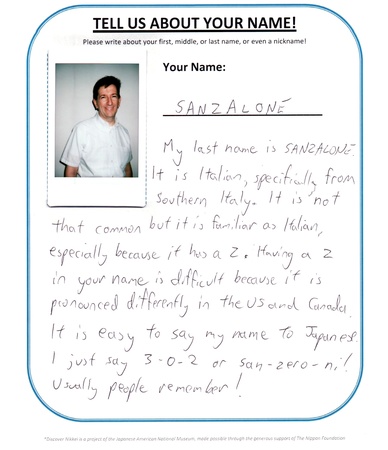 TELL US ABOUT YOUR NAME!
Please write about your first, middle, or last name, or even a nickname!
Your Name:
SANZALONE
My last name is SANZALONE.
It is Italian, specifically from
Southern Italy. It is not
that common but it is familiar as Italian,
especially because it has a Z. Having a Z
in your name is difficult because it is
pronounced differently in the US and Canada.
It is easy to say my name to Japanese.
I just say 3-0-2 or san-zero-ni!
Usually people remember!
*Discover Nikkei is a project of the Japanese American National Museum, made possible through the generous support of The Nippon Foundation